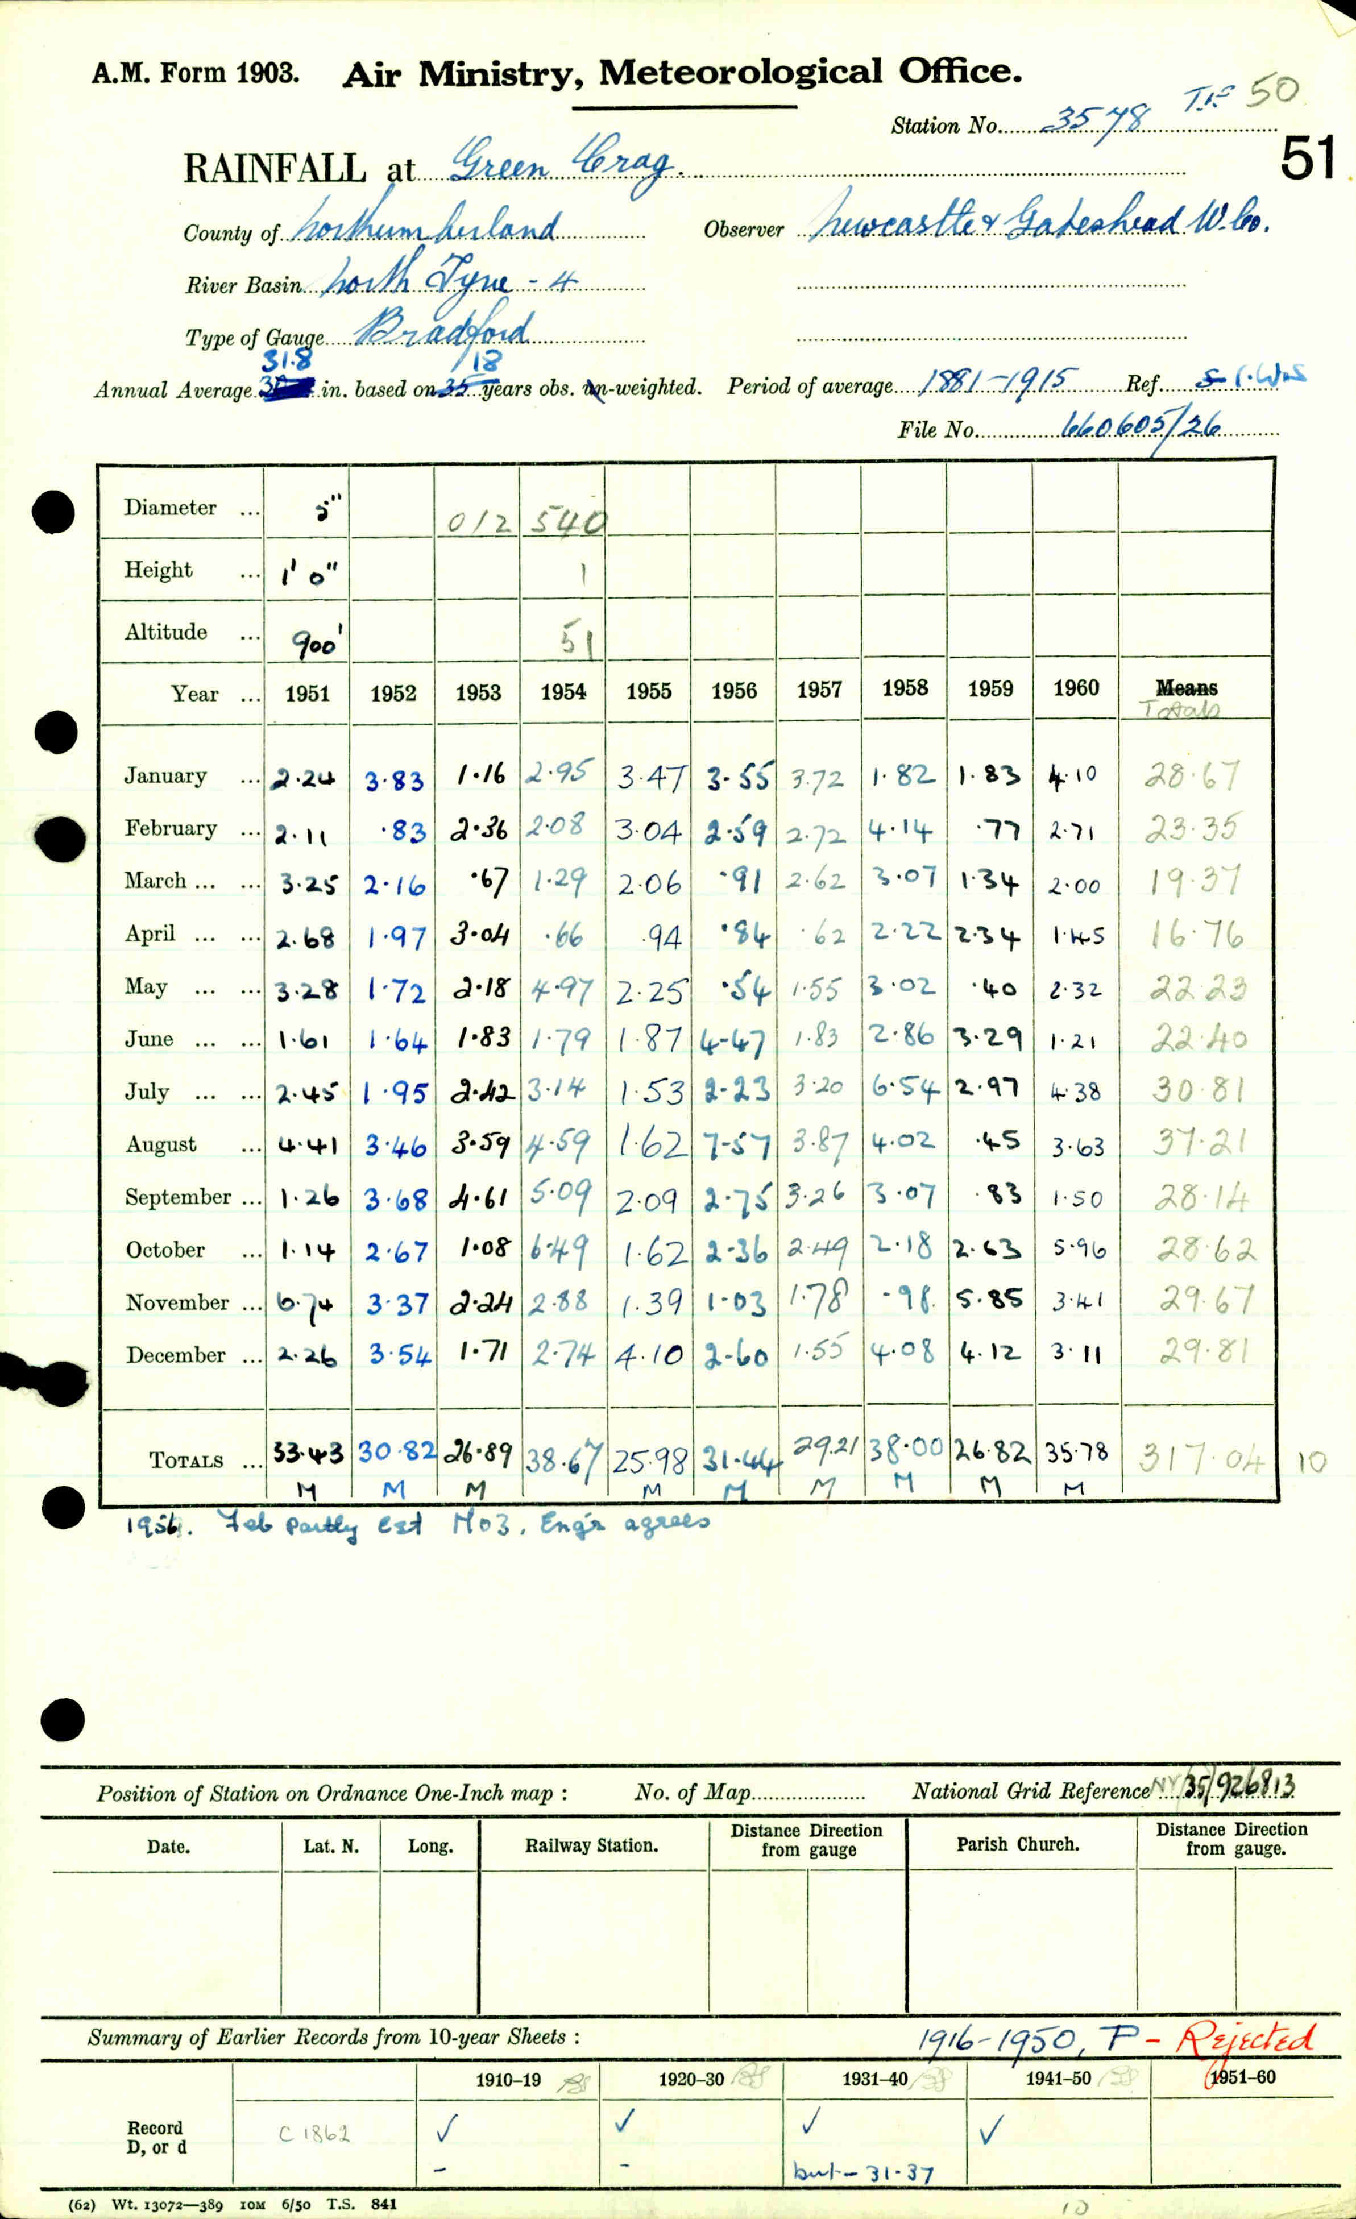 A.M. Form 1903. Air Ministry, Meteorological Office.
50
Station No. 3578
51
RAINFALL at Green Crag.
County of Northumberland Observer Newcastle & Gateshead W. Co.
River Basin North Tyne - 4
Type of Gauge Bradford
31.8 /18
Annual Average in. based on 35 years obs. un-weighted. Period of average 1881-1915 Ref.
File No. 660605/26
Diameter ... 5" 012 540
Height ... 1' 0" 1
Altitude ... 900' 51
Year ... 1951 1952 1953 1954 1955 1956 1957 1958 1959 1960 Means
Totals
January ... 2.24 3.83 1.16 2.95 3.47 3.55 3.72 1.82 1.83 4.10 28.67
February ... 2.11 .83 2.36 2.08 3.04 2.59 2.72 4.14 .77 2.71 23.35
March ... ... 3.25 2.16 .67 1.29 2.06 .91 2.62 3.07 1.34 2.00 19.37
April ... ... 2.68 1.97 3.04 .66 .94 .84 .62 2.22 2.34 1.45 16.76
May ... ... 3.28 1.72 2.18 4.97 2.25 .54 1.55 3.02 .40 2.32 22.23
June ... ... 1.61 1.64 1.83 1.79 1.87 4.47 1.83 2.86 3.29 1.21 22.40
July ... ... 2.45 1.95 2.42 3.14 1.53 2.23 3.20 6.54 2.97 4.38 30.81
August ... 4.41 3.46 3.59 4.59 1.62 7.57 3.87 4.02 .45 3.63 37.21
September ... 1.26 3.68 4.61 5.09 2.09 2.75 3.26 3.07 .83 1.50 28.14
October ... 1.14 2.67 1.08 6.49 1.62 2.36 2.49 2.18 2.63 5.96 28.62
November ... 6.74 3.37 2.24 2.88 1.39 1.03 1.78 .98 5.85 3.41 29.67
December ... 2.26 3.54 1.71 2.74 4.10 2.60 1.55 4.08 4.12 3.11 29.81
TOTALS ... 33.43 30.82 26.89 38.67 25.98 31.44 29.21 38.00 26.82 35.78 317.04 10
M M M M M M M M M
1956. Feb partly est M03. Engr agrees
Position of Station on Ordnance One-Inch map : No. of Map National Grid Reference NY 35/926813
Date. Lat. N. Long. Railway Station. Distance Direction from gauge Parish Church. Distance Direction from gauge.
Summary of Earlier Records from 10-year Sheets : 1916-1950, P - Rejected
1910–19 1920–30 1931–40 1941–50 1951–60
Record
D, or d C 1862 ✓ ✓ ✓ ✓
- - but - 31-37
(62) Wt. 13072—389 10M 6/50 T.S. 841
10